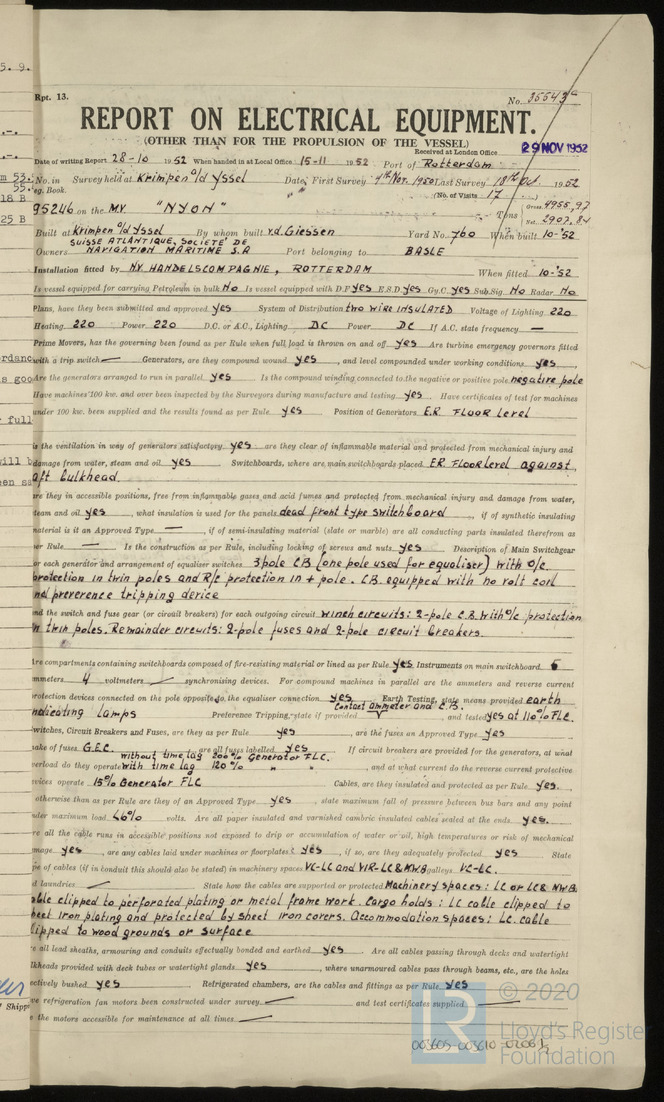 Rpt. 13.
No. 35543c
REPORT ON ELECTRICAL EQUIPMENT.
(OTHER THAN FOR THE PROPULSION OF THE VESSEL)
Received at London Office 29 NOV 1952
Date of writing Report 28-10 1952 When handed in at Local Office 15-11 1952 Port of Rotterdam
No. in Survey held at Krimpen a/d Yssel Date, First Survey 4th Nov. 1950 Last Survey 18th Oct. 1952
eg. Book. (No. of Visits 17)
95246 on the M.V "NYON" Tons Gross 4955,97 Net 2907.84
Built at Krimpen a/d Yssel By whom built v.d. Giessen Yard No. 760 When built 10-'52
Owners SUISSE ATLANTIQUE, SOCIETE DE NAVIGATION MARITIME S.A Port belonging to BASLE
Installation fitted by N.V. HANDELSCOMPAGNIE, ROTTERDAM When fitted 10-'52
Is vessel equipped for carrying Petroleum in bulk No Is vessel equipped with D.F yes E.S.D. yes Gy.C. yes Sub.Sig No Radar No
Plans, have they been submitted and approved yes System of Distribution two wire INSULATED Voltage of Lighting 220
Heating 220 Power 220 D.C. or A.C., Lighting DC Power DC If A.C. state frequency —
Prime Movers, has the governing been found as per Rule when full load is thrown on and off yes Are turbine emergency governors fitted
with a trip switch — Generators, are they compound wound yes, and level compounded under working conditions yes
Are the generators arranged to run in parallel yes Is the compound winding connected to the negative or positive pole negative pole
Have machines 100 kw. and over been inspected by the Surveyors during manufacture and testing yes Have certificates of test for machines
under 100 kw. been supplied and the results found as per Rule yes Position of Generators E.R. FLOOR level
is the ventilation in way of generators satisfactory yes are they clear of inflammable material and protected from mechanical injury and
damage from water, steam and oil yes Switchboards, where are main switchboards placed E.R. FLOOR level against
aft bulkhead
are they in accessible positions, free from inflammable gases and acid fumes and protected from mechanical injury and damage from water,
team and oil yes, what insulation is used for the panels dead front type switchboard, if of synthetic insulating
material is it an Approved Type —, if of semi-insulating material (slate or marble) are all conducting parts insulated therefrom as
er Rule — Is the construction as per Rule, including locking of screws and nuts yes Description of Main Switchgear
or each generator and arrangement of equaliser switches 3 pole C.B. (one pole used for equaliser) with o/c.
protection in twin poles and R/c protection in + pole. C.B. equipped with no volt coil
nd preverence tripping device
and the switch and fuse gear (or circuit breakers) for each outgoing circuit winch circuits: 2-pole C.B. with o/c protection
n twin poles. Remainder circuits: 2-pole fuses and 2-pole circuit breakers.
Are compartments containing switchboards composed of fire-resisting material or lined as per Rule yes, Instruments on main switchboard 6
ammeters 4 voltmeters — synchronising devices. For compound machines in parallel are the ammeters and reverse current
rotection devices connected on the pole opposite to the equaliser connection yes Earth Testing, state means provided earth
indicating lamps Preference Tripping, state if provided Contact Ammeter and C.B., and tested yes at 110% FLC.
Switches, Circuit Breakers and Fuses, are they as per Rule yes, are the fuses an Approved Type yes
make of fuses G.E.C. are all fuses labelled yes If circuit breakers are provided for the generators, at what
overload do they operate without time lag 200% Generator FLC. with time lag 120% " ", and at what current do the reverse current protective
evices operate 15% Generator FLC Cables, are they insulated and protected as per Rule yes
otherwise than as per Rule are they of an Approved Type yes, state maximum fall of pressure between bus bars and any point
under maximum load volts. Are all paper insulated and varnished cambric insulated cables sealed at the ends yes.
re all the cable runs in accessible positions not exposed to drip or accumulation of water or oil, high temperatures or risk of mechanical
amage yes, are any cables laid under machines or floorplates yes, if so, are they adequately protected yes State
type of cables (if in conduit this should also be stated) in machinery spaces VC-LC and VIR-LC & M.W.B. galleys VC-LC.
d laundries — State how the cables are supported or protected Machinery spaces: LC or LC & M.W.B.
able clipped to perforated plating or metal frame work. Cargo holds: LC cable clipped to
heet iron plating and protected by sheet iron covers. Accommodation spaces: LC. cable
lipped to wood grounds or surface
re all lead sheaths, armouring and conduits effectually bonded and earthed yes Are all cables passing through decks and watertight
lkheads provided with deck tubes or watertight glands yes, where unarmoured cables pass through beams, etc., are the holes
ectively bushed yes Refrigerated chambers, are the cables and fittings as per Rule yes
ve refrigeration fan motors been constructed under survey — and test certificates supplied —
e the motors accessible for maintenance at all times —
© 2020
LR
Lloyd's Register
Foundation
003605-003610-0206